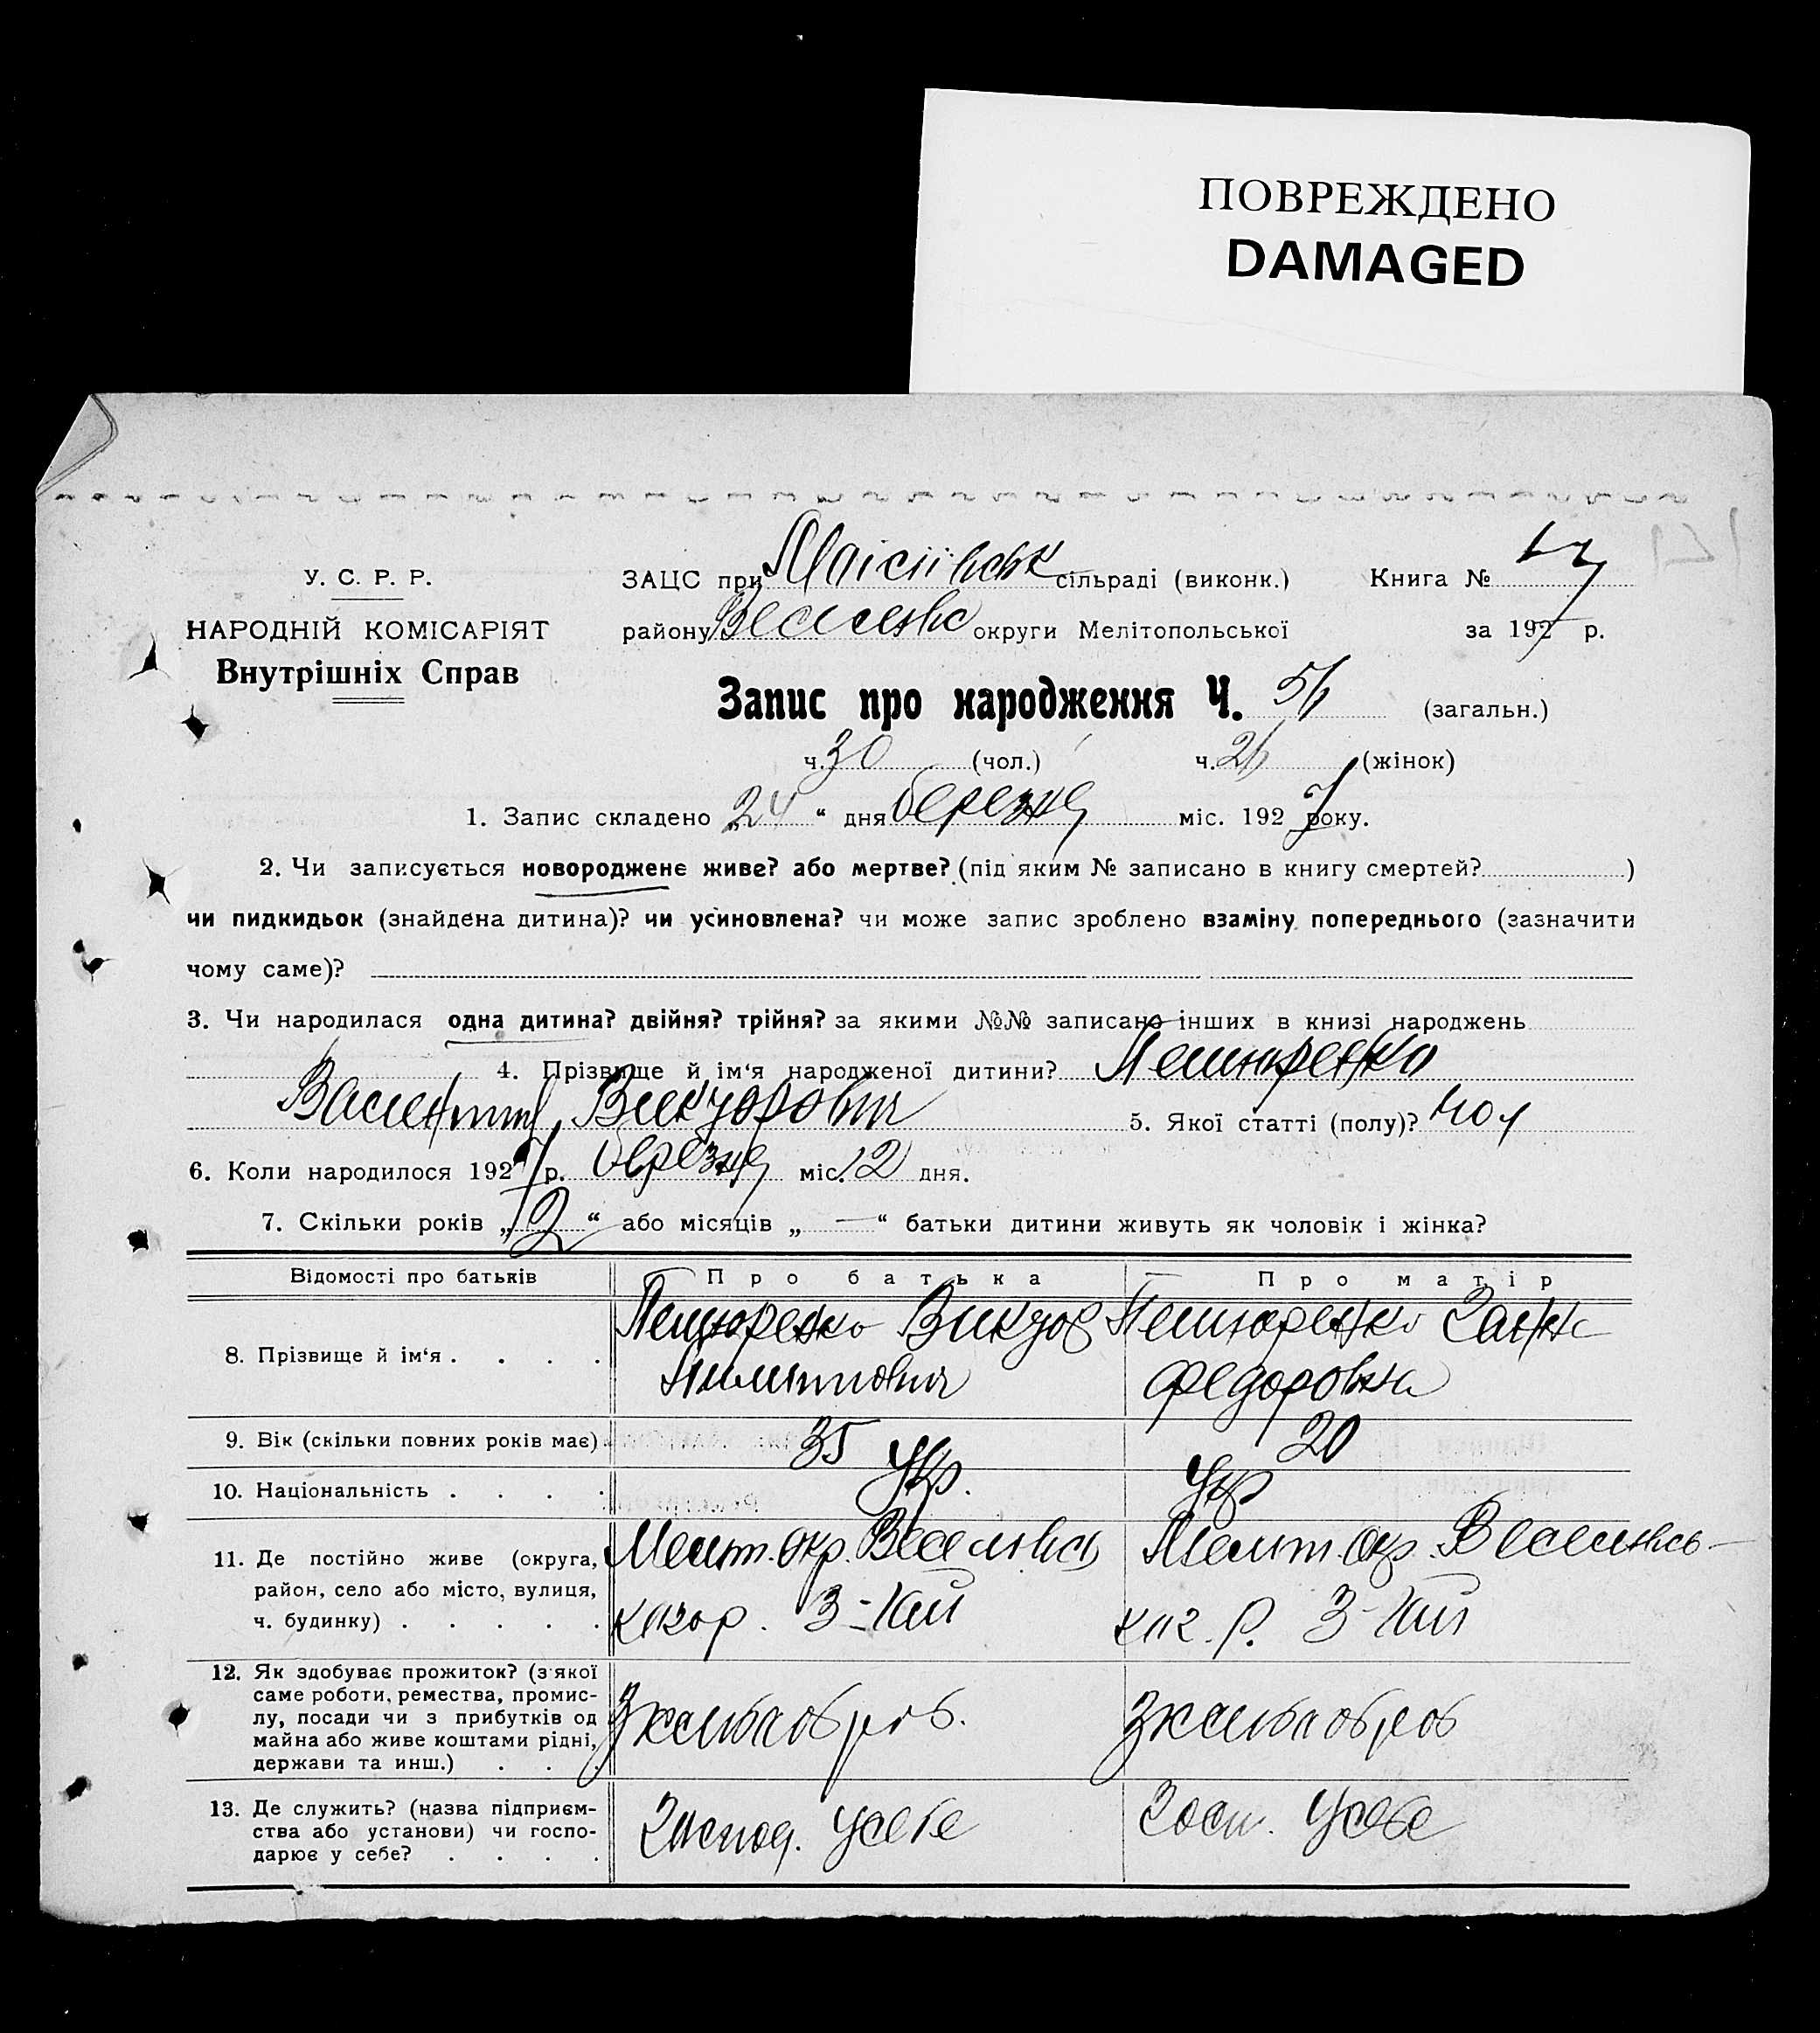 ПОВРЕЖДЕНО
DAMAGED
У. С. Р. Р.
НАРОДНІЙ КОМІСАРІЯТ
Внутрішніх Справ
ЗАЦС при сільраді (виконк.) Книга №
району округи Мелітопольської за 1927 р.
Запис про народження Ч. 56 (загальн.)
ч. 30 (чол.) ч. 26 (жінок)
1. Запис складено „24“ дня березня міс. 1927 року.
2. Чи записується новороджене живе? або мертве? (під яким № записано в книгу смертей? )
чи пидкидьок (знайдена дитина)? чи усиновлена? чи може запис зроблено взаміну попереднього (зазначити
чому саме)?
3. Чи народилася одна дитина? двійня? трійня? за якими №№ записано інших в книзі народжень
4. Прізвище й ім‘я народженої дитини?
Викторович 5. Якої статті (полу)? чол
6. Коли народилося 1927 р. березня міс. 12 дня.
7. Скільки років „2“ або місяців „—“ батьки дитини живуть як чоловік і жінка?
Відомості про батьків Про батька Про матір
8. Прізвище й ім‘я . . . . Виктор
Федоровна
9. Вік (скільки повних років має) 35 20
10. Національність . . . . Укр. Укр
11. Де постійно живе (округа, Мелит. окр. Мелит. окр.
район, село або місто, вулиця,
ч. будинку) . . . . .
12. Як здобуває прожиток? (з якої
саме роботи, ремества, промис-
лу, посади чи з прибутків од
майна або живе коштами рідні,
держави та инш.) . . .
13. Де служить? (назва підприєм-
ства або установи) чи госпо-
дарює у себе? . . . . Господ. у себе Госп. у себе